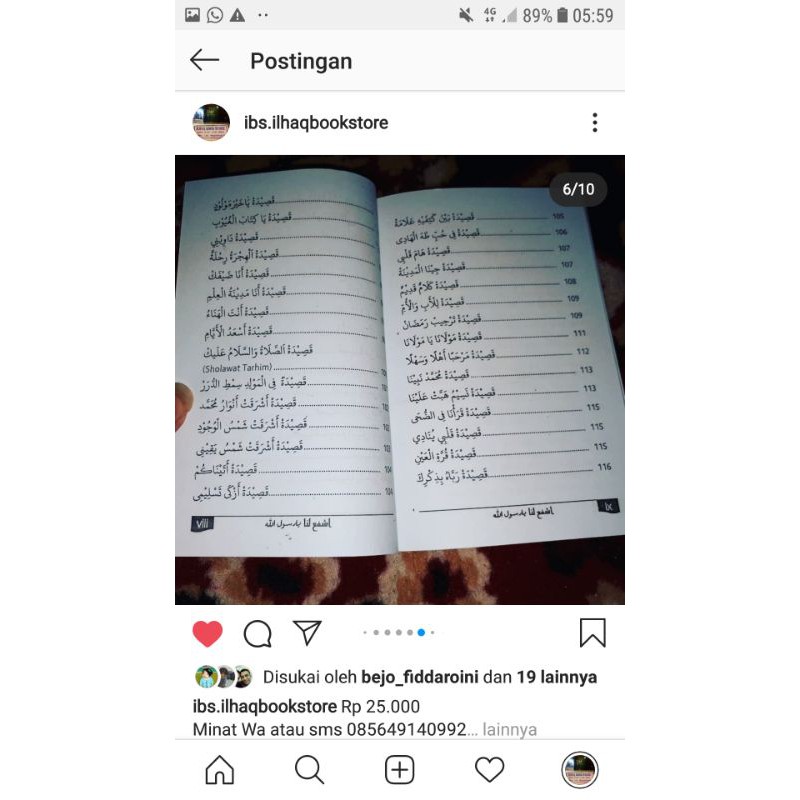 89% 05:59
Postingan
ibs.ilhaqbookstore
6/10
قَصِيْدَةْ يَا خَيْرَ مَوْلُوْدٍ
قَصِيْدَةْ يَا كِتَابَ الْغُيُوْبِ
قَصِيْدَةْ دَاوِيْنِي
قَصِيْدَةْ اَلْهِجْرَةُ رِحْلَةٌ
قَصِيْدَةْ أَنَا ضَيْفُكَ
قَصِيْدَةْ أَنَا مَدِيْنَةُ الْعِلْمِ
قَصِيْدَةْ أَنْتَ الْهَنَاءُ
قَصِيْدَةْ أَسْعَدُ الْأَيَّامِ
قَصِيْدَةْ اَلصَّلَاةُ وَالسَّلَامُ عَلَيْكَ
(Sholawat Tarhim)
قَصِيْدَةْ فِى الْمَوْلِدِ سِمْطِ الدُّرَرْ
قَصِيْدَةْ أَشْرَقَتْ أَنْوَارُ مُحَمَّد
قَصِيْدَةْ أَشْرَقَتْ شَمْسُ الْوُجُوْدِ
قَصِيْدَةْ أَشْرَقَتْ شَمْسُ يَقِيْنِي
قَصِيْدَةْ أَتَيْنَاكُمْ 104
قَصِيْدَةْ أَزْكَى تَسْلِيْمِى
viii اشفع لنا يا رسول الله
قَصِيْدَةْ بَيْنَ كَتِفَيْهِ عَلَامَةْ 105
قَصِيْدَةْ فِى حُبِّ طٰهَ الْهَادِى 106
قَصِيْدَةْ هَامَ قَلْبِي 107
قَصِيْدَةْ جِيْنَا الْمَدِيْنَةْ 107
قَصِيْدَةْ كَلَامٌ قَدِيْمٌ 108
قَصِيْدَةْ لِلْأَبِ وَالْأُمِّ 109
قَصِيْدَةْ تَرْحِيْبِ رَمَضَانْ 109
قَصِيْدَةْ مَوْلَانَا يَا مَوْلَانَا 111
قَصِيْدَةْ مَرْحَبًا أَهْلًا وَسَهْلًا 112
قَصِيْدَةْ مُحَمَّدْ نَبِيْنَا 113
قَصِيْدَةْ نَسِيْمٌ هَبَّتْ عَلَيْنَا 113
قَصِيْدَةْ قَرَأْنَا فِى الضُّحَى 115
قَصِيْدَةْ قَلْبِي يُنَادِي 115
قَصِيْدَةْ قُرَّةِ الْعَيْنِ 115
قَصِيْدَةْ رَبَّاهُ بِذِكْرِكَ 116
اشفع لنا يا رسول الله ix
Disukai oleh bejo_fiddaroini dan 19 lainnya
ibs.ilhaqbookstore Rp 25.000
Minat Wa atau sms 085649140992... lainnya